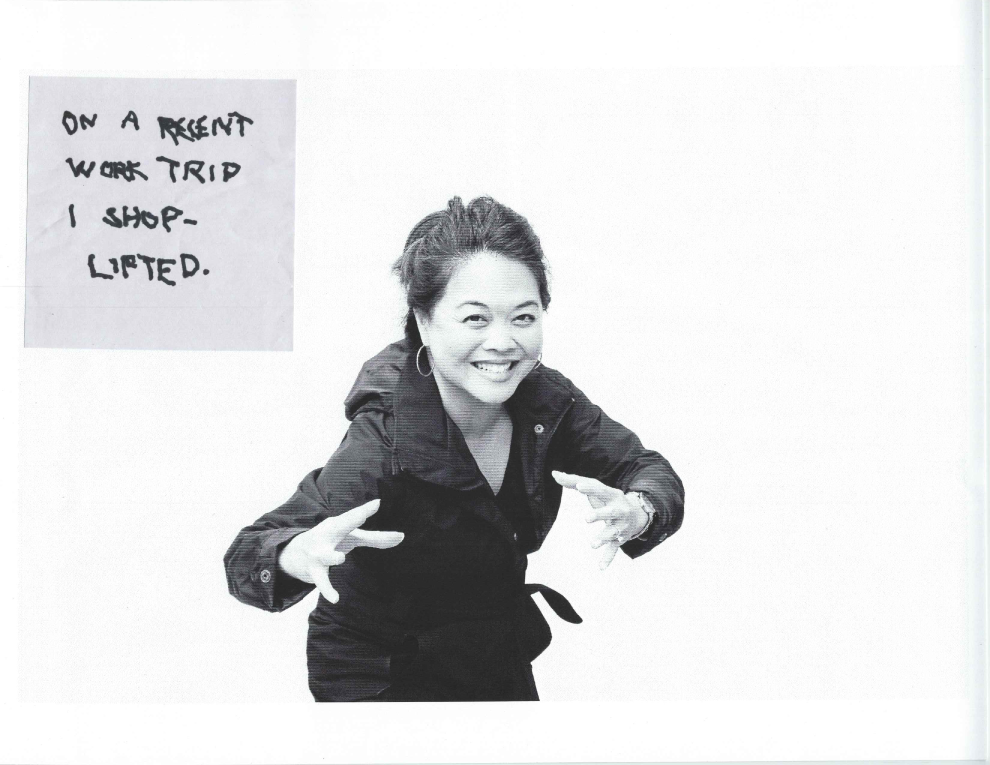 ON A RECENT
WORK TRIP
I SHOP-
LIFTED.